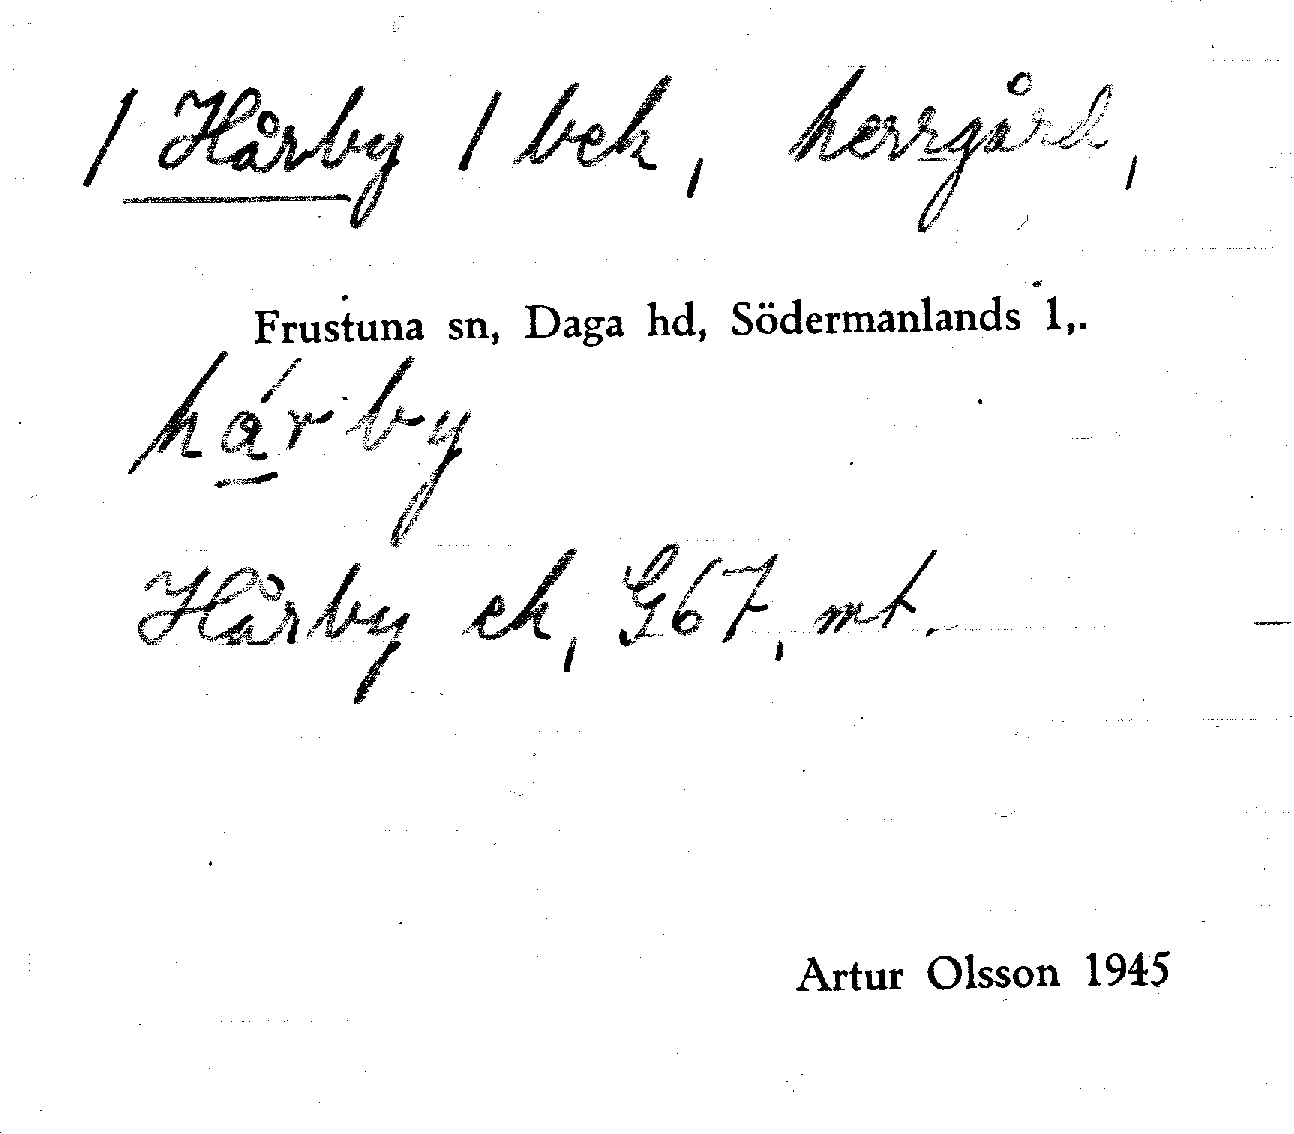 / Hårby / bek, herrgård,
Frustuna sn, Daga hd, Södermanlands l,.
hárby
Hårby ek, G67, mt.
Artur Olsson 1945